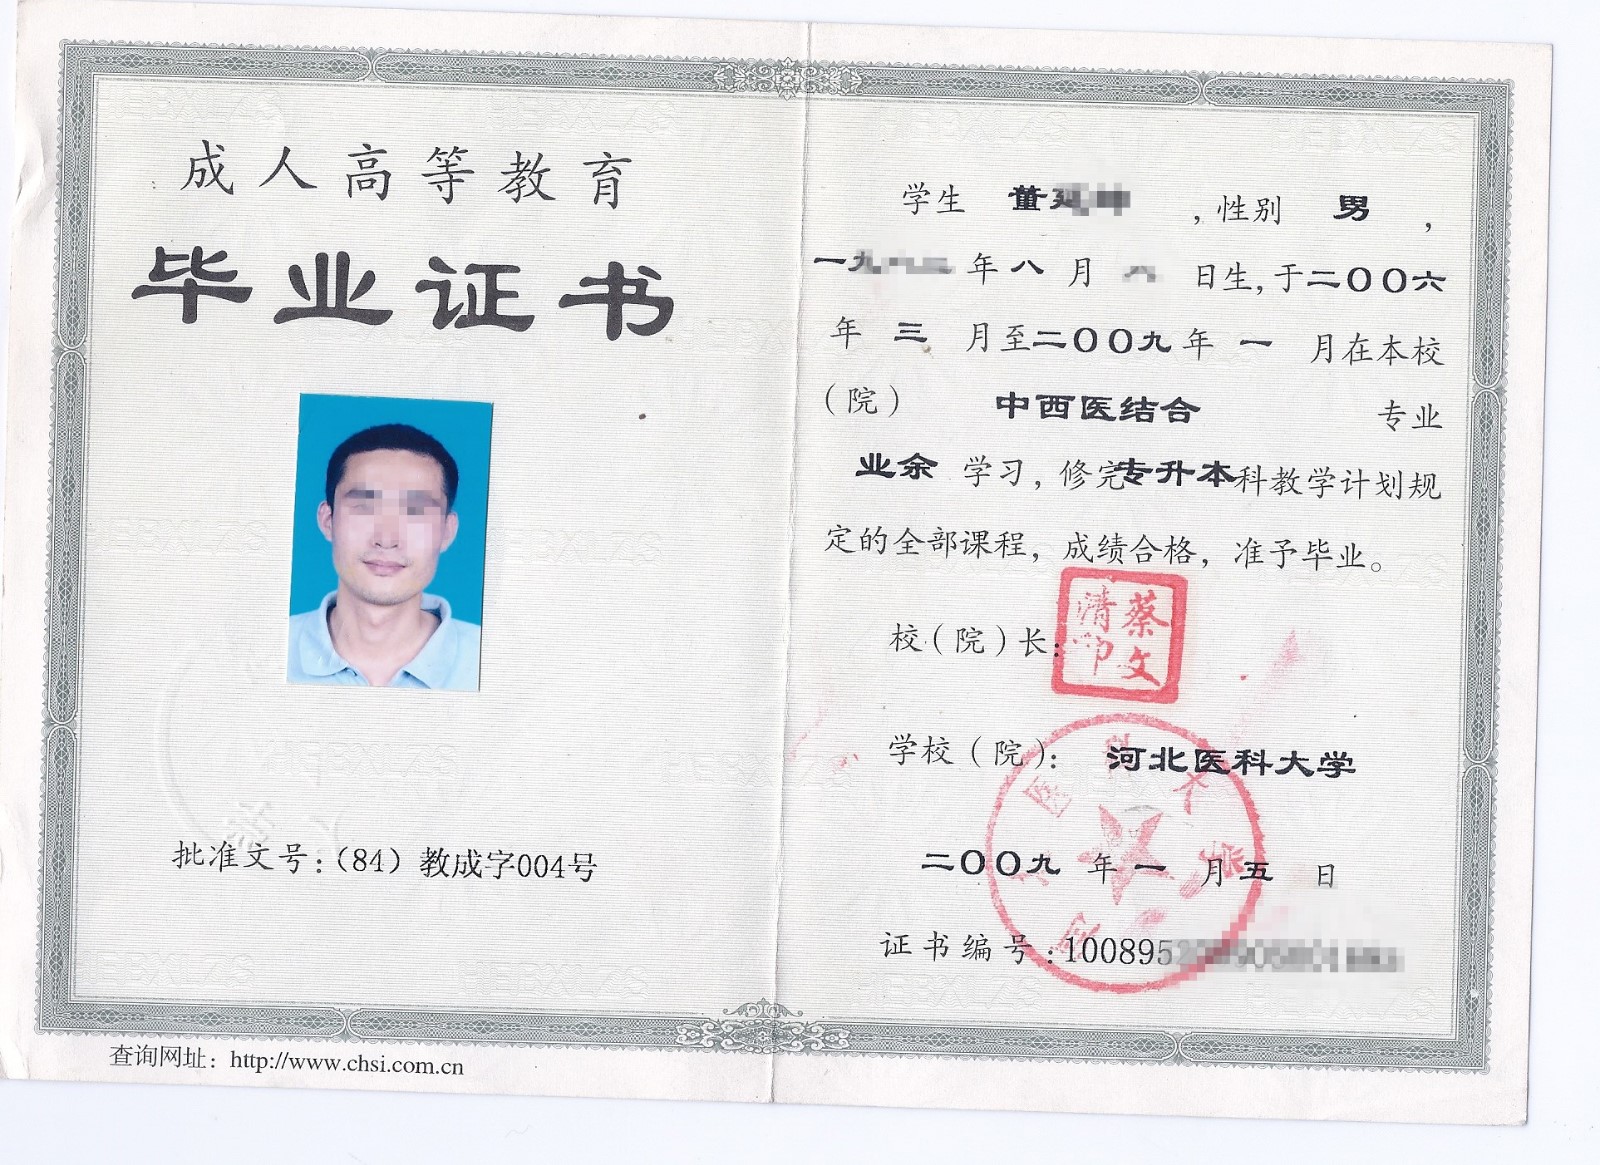 成人高等教育
毕业证书
批准文号：（84）教成字004号
查询网址：http://www.chsi.com.cn
学生 董 ，性别 男 ，
一九 年 八 月 日生，于二〇〇六
年 三 月至二〇〇九年 一 月在本校
（院） 中西医结合 专业
业余 学习，修完专升本科教学计划规
定的全部课程，成绩合格，准予毕业。
校（院）长：
蔡文清印
学校（院）： 河北医科大学
二〇〇九 年 一 月 五 日
证书编号：100895